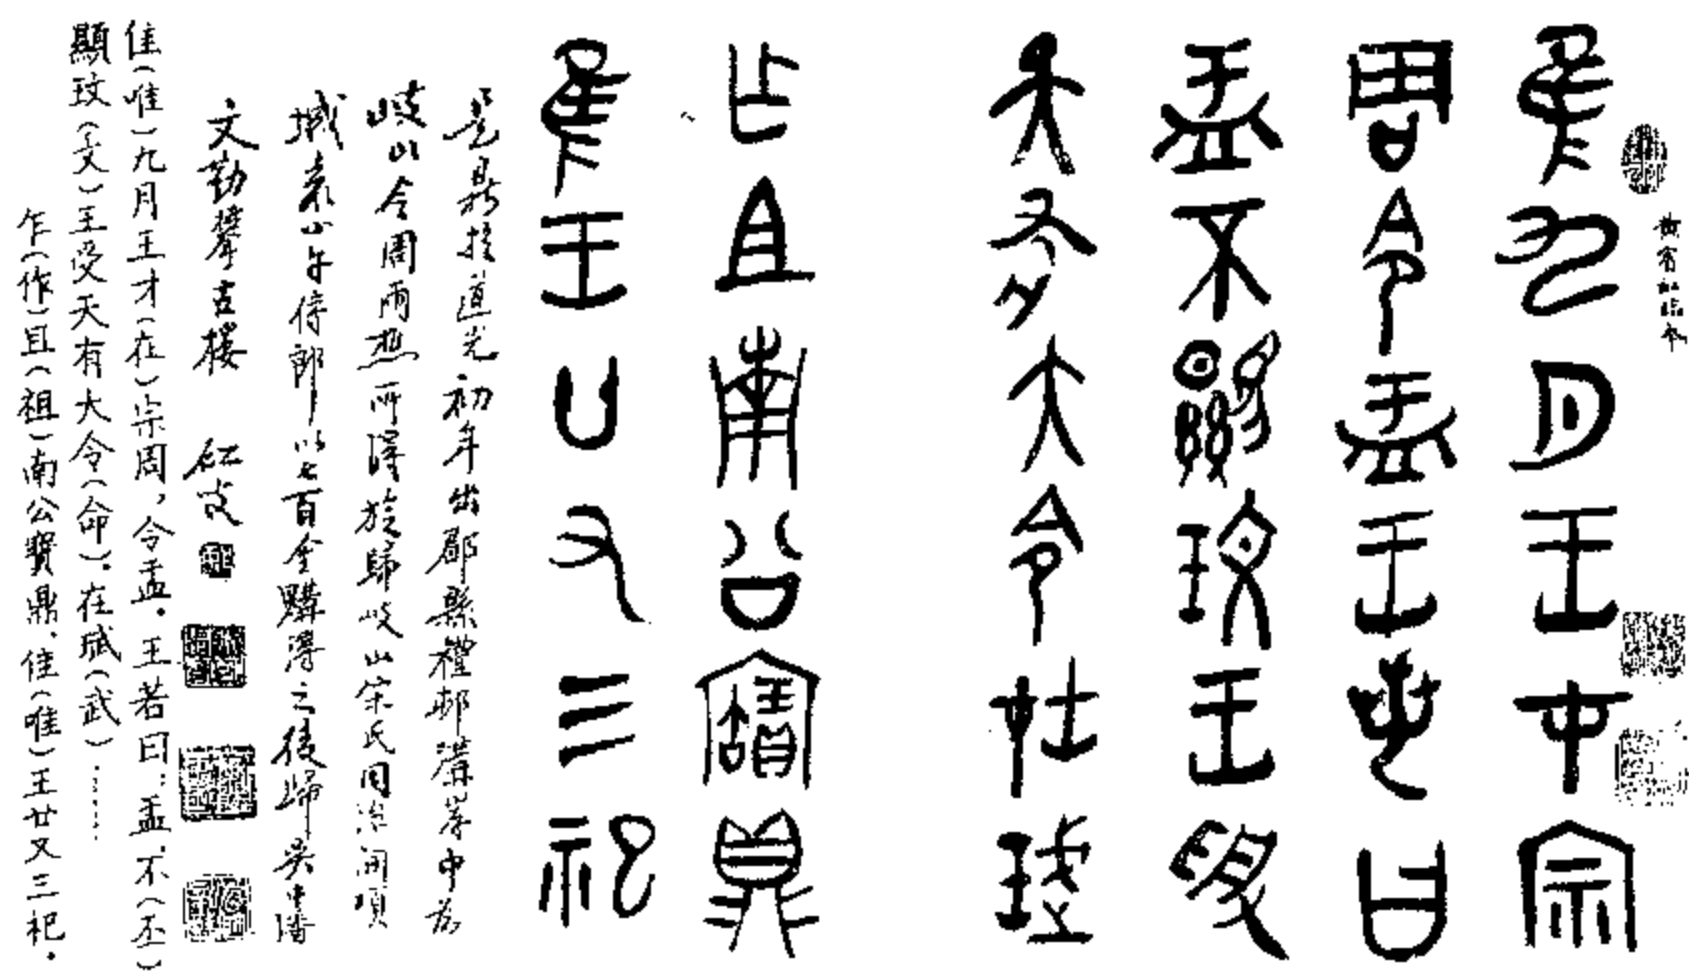 黄賓虹臨本
隹九月王才宗
周令盂王若曰
盂不顯玟王受
天有大令在珷
乍且南公寶鼎
隹王廿又三祀
是鼎於道光初年出郿縣禮邨溝岸中為
岐山令周雨樵所得旋歸岐山宋氏同治間項
城袁小午侍郎以七百金購得之後歸吳中潘
文勤攀古樓 虹叟
隹(唯)九月王才(在)宗周,令盂。王若曰:盂,不(丕)
顯玟(文)王受天有大令(命)。在珷(武)……
乍(作)且(祖)南公寶鼎,隹(唯)王廿又三祀。